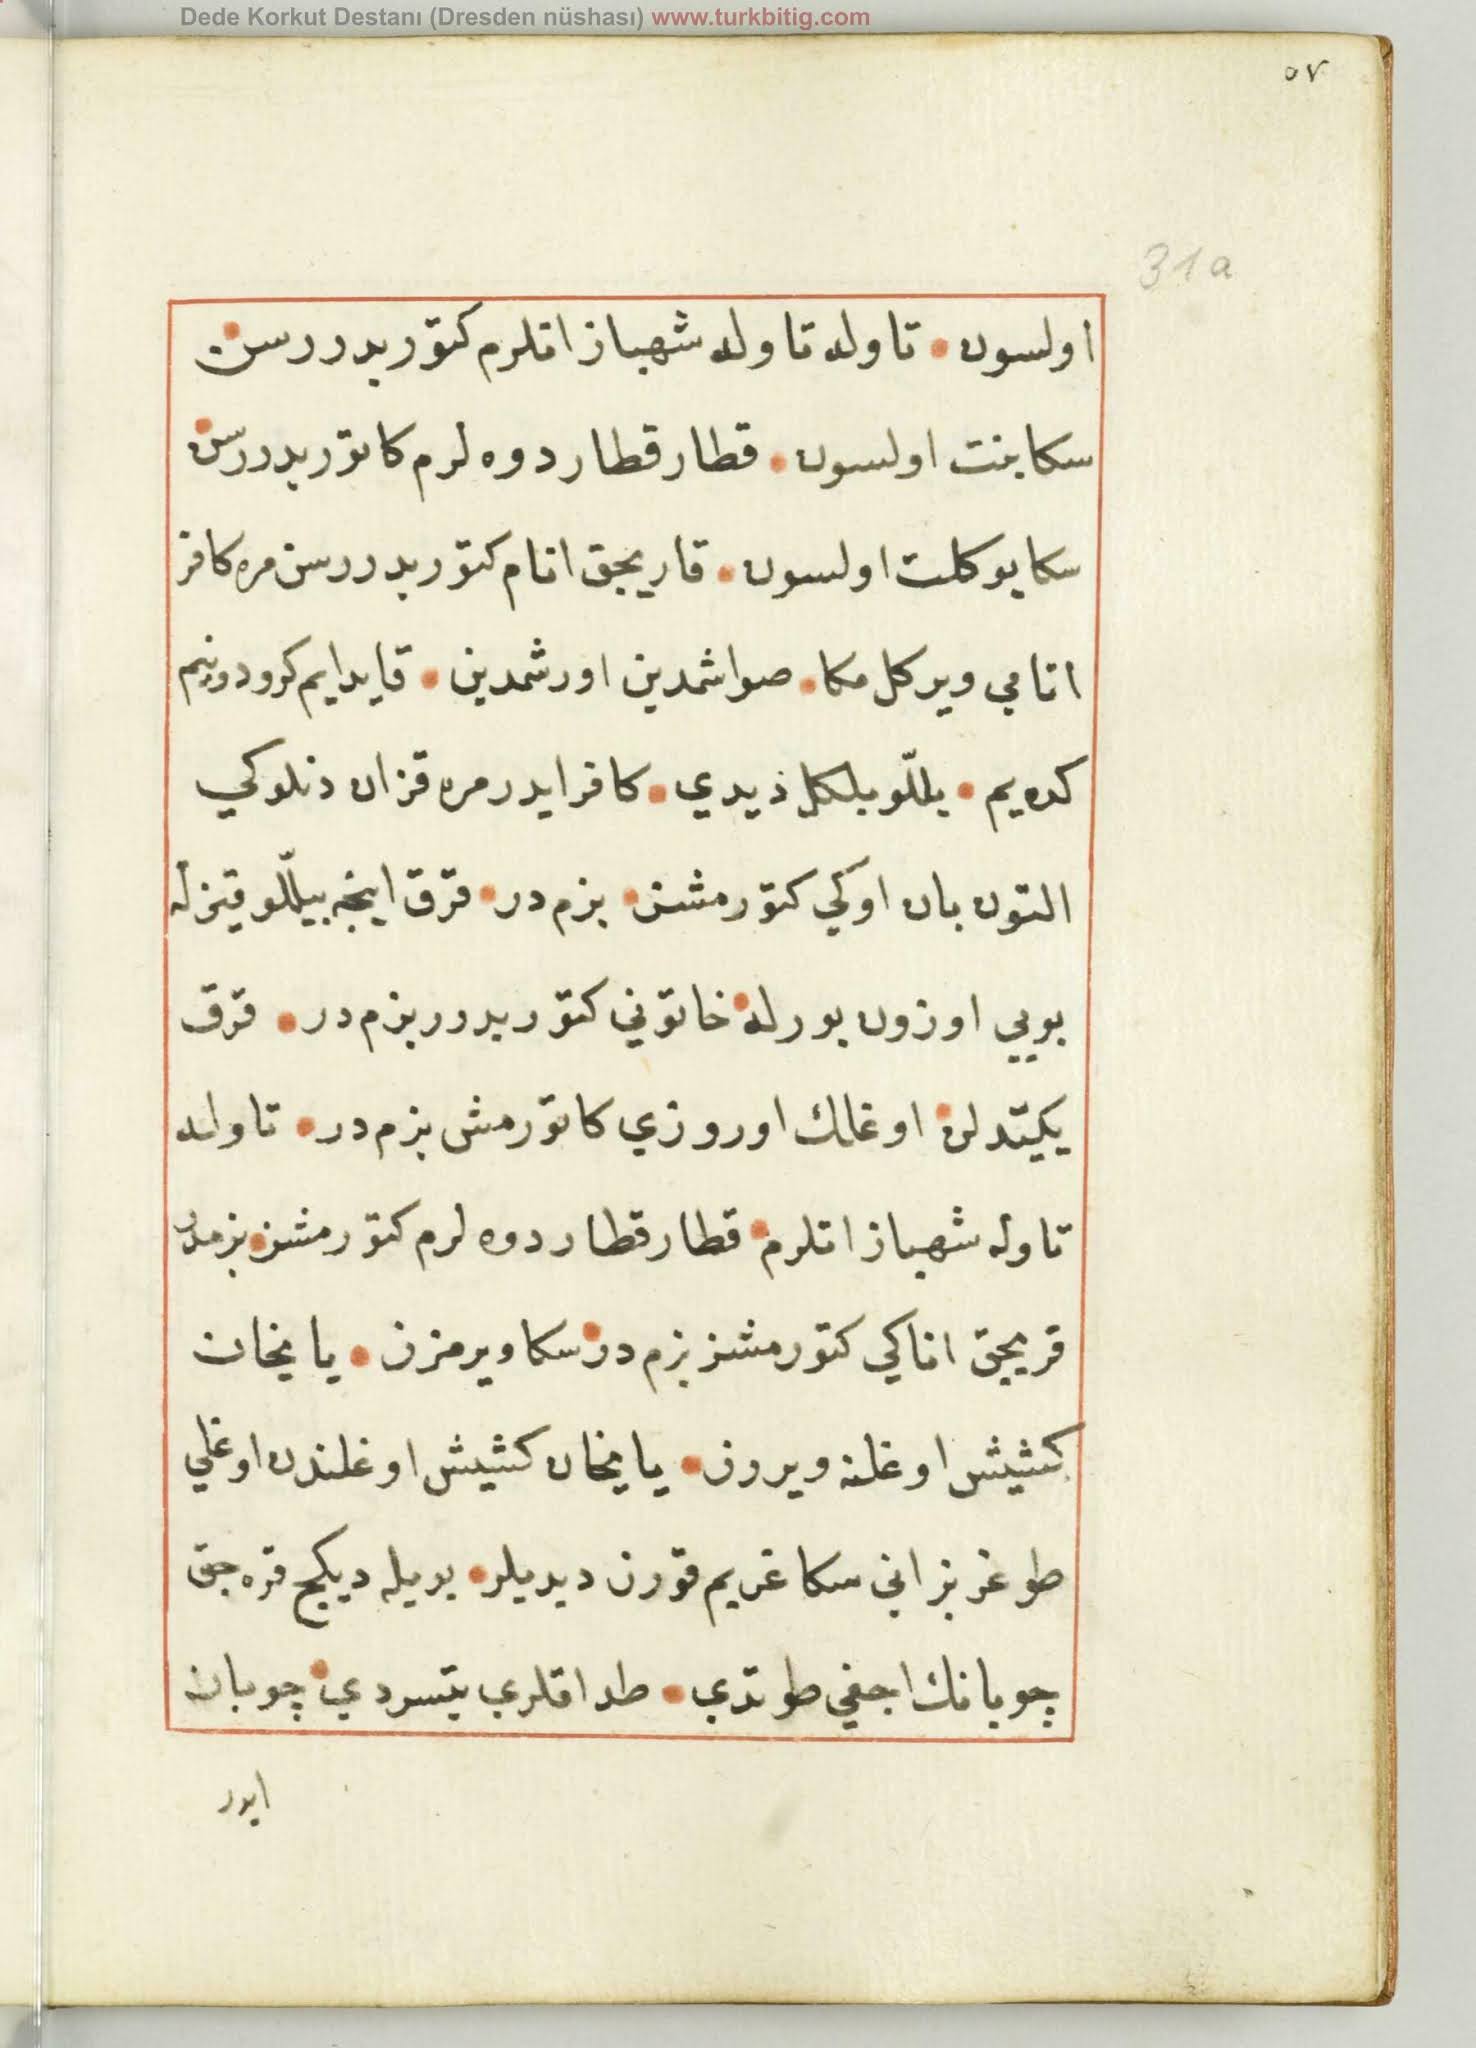 Dede Korkut Destanı (Dresden nüshası) www.turkbitig.com
٥٧
31a
اولسون • تاوله تاوله شهباز اتلرم كتوربدررسن •
سكا بنت اولسون • قطار قطار دوه لرم كاتوربدررسن •
سكا يوكلت اولسون • قاريجق انام كتوربدررسن مره كافر
انامي ويركل مكا • صواشمدين اورشمدين • قايدايم كرو دونيم
كده يم • بللّو بلكل ذيدي • كافر ايدر مره قزان دنلوكي
التون بان اوكي كتورمشز • بزم در • قرق اينجه بيللّو قيزله
بويي اوزون بورله • خاتوني كتوربدرر بزم در • قرق
يكيتدلن • اوغلك اوروزي كاتورمش بزم در • تاوله
تاوله شهباز اتلرم • قطار قطار دوه لرم كتورمشز • بزمدر
قريجق اناكي كتورمشز بزم در • سكا ويرمزن • يايخان
كشيش اوغلنه ويرون • يايخان كشيش اوغلندن اوغلي
طوغر بز اني سكا غريم قورن ديديلر • بويله ديكج قره جق
چوبانك اجغي طوتدي • طداقلري يتسردي • چوبان
ايدر